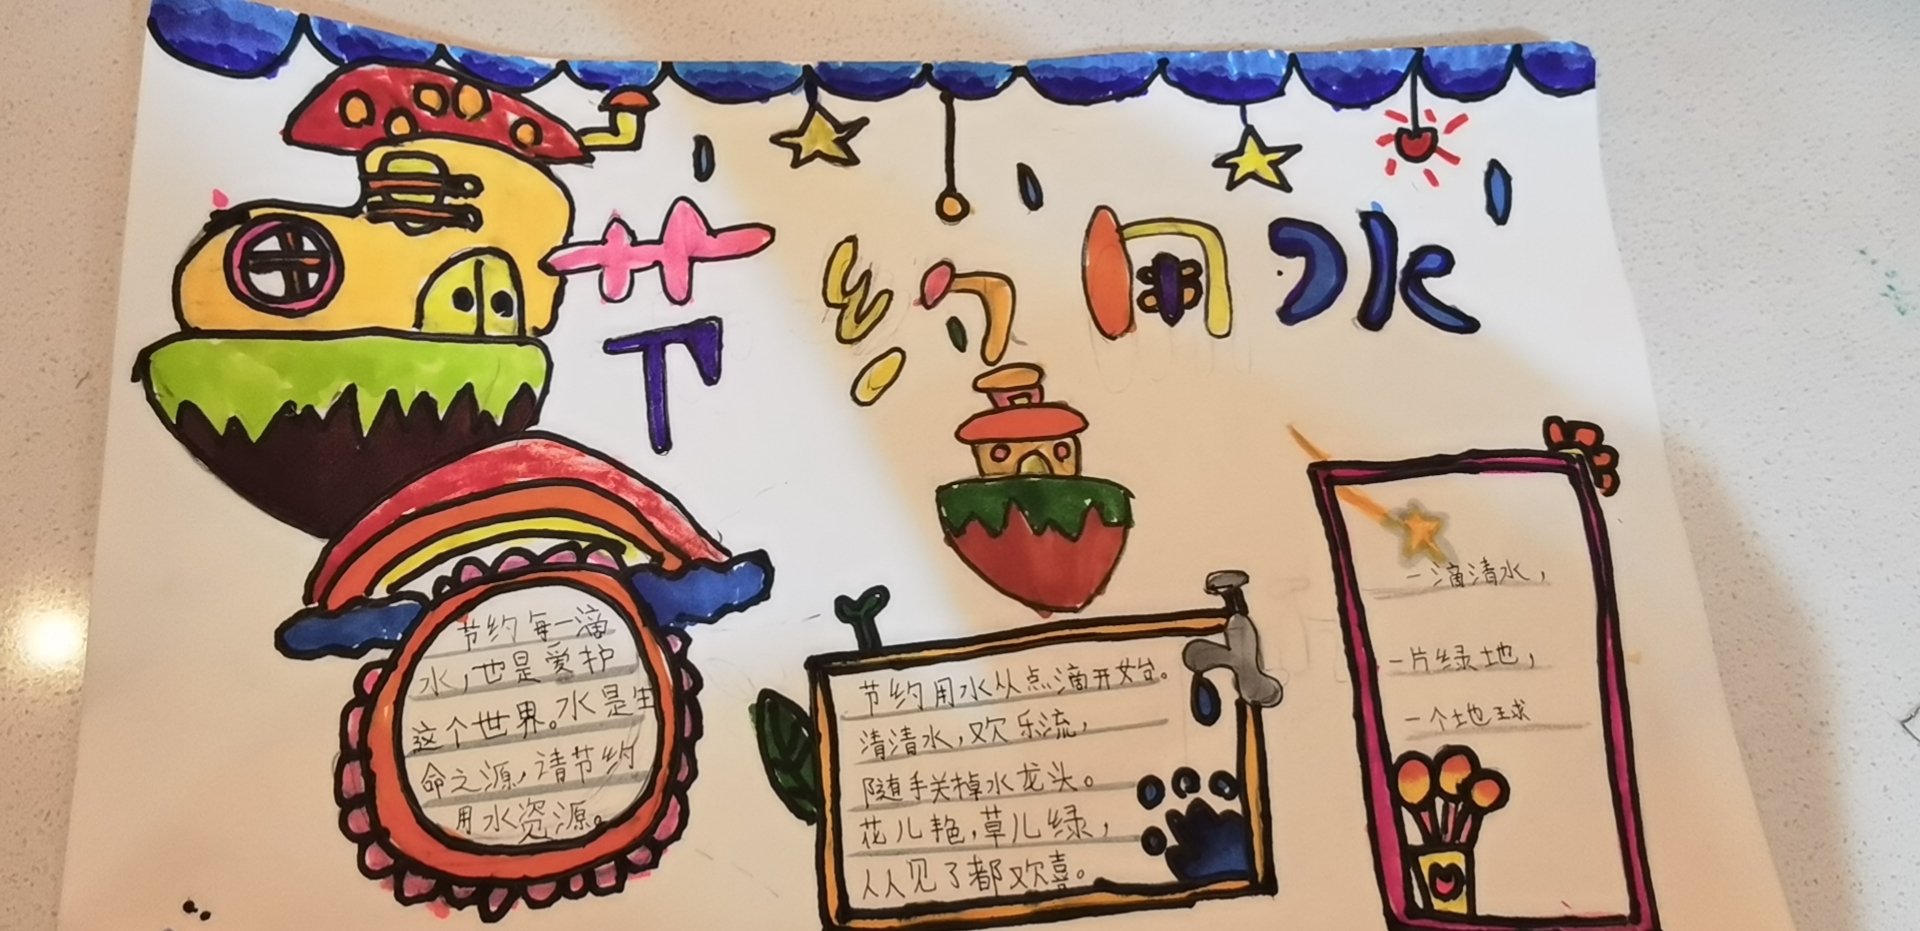 节约用水
节约每一滴
水，也是爱护
这个世界。水是生
命之源，请节约
用水资源。
节约用水从点滴开始。
清清水，欢乐流，
随手关掉水龙头。
花儿艳，草儿绿，
人人见了都欢喜。
一滴清水，
一片绿地，
一个地球